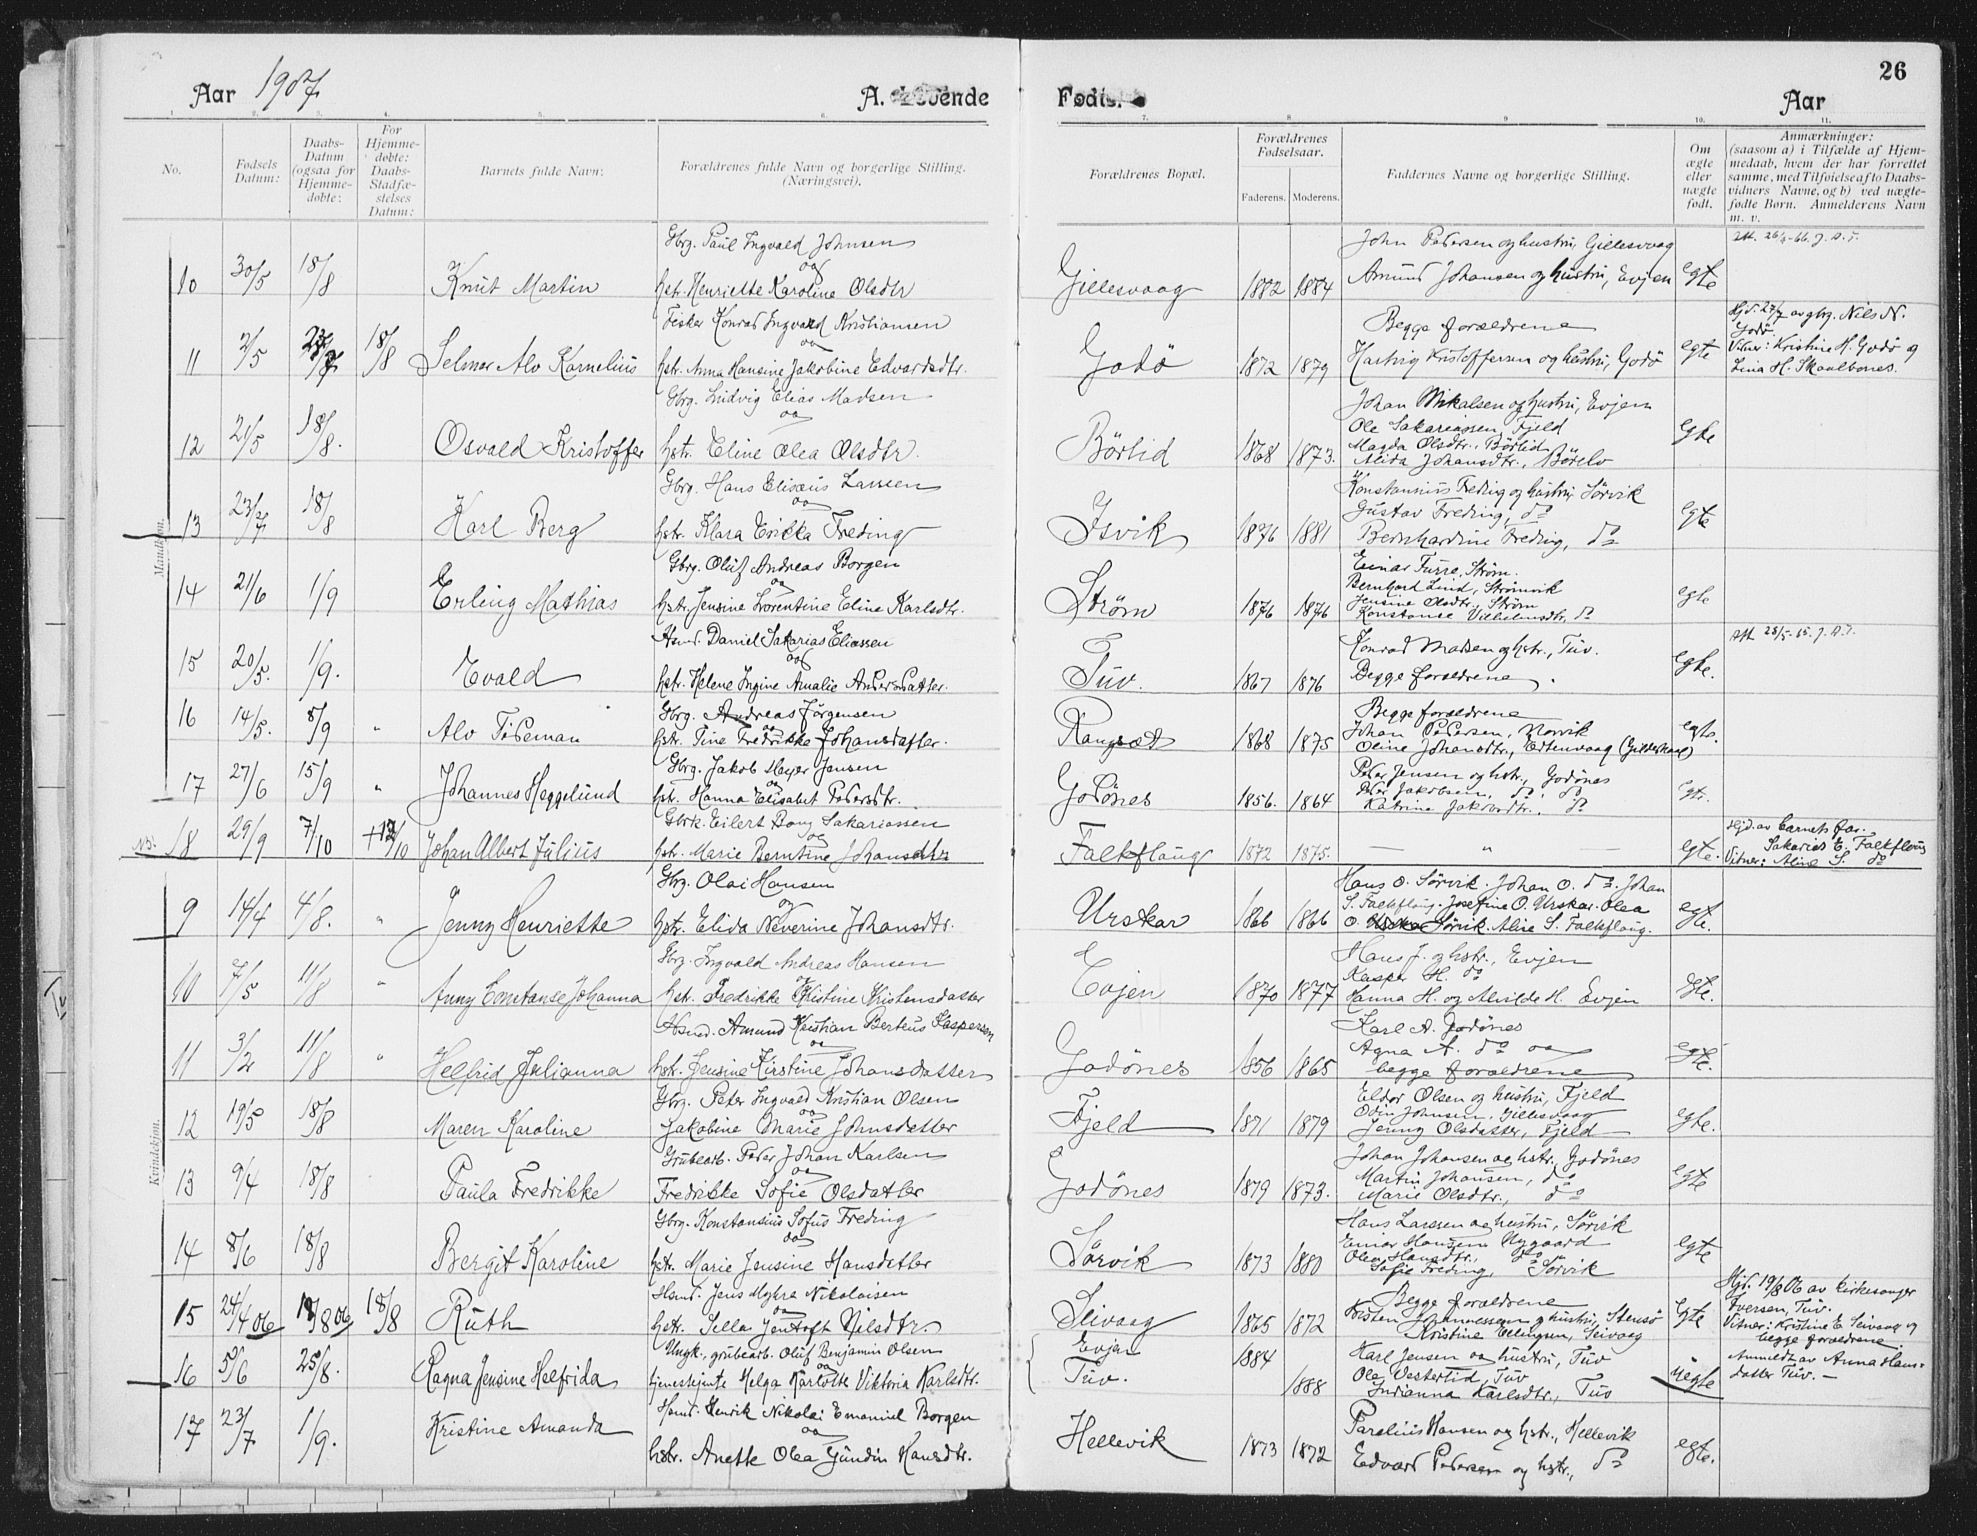 Aar 1907 A. Levende Fødte. Aar 26
1. 2. 3. 4. 5. 6. 7. 8. 9. 10. 11.
No.
Fødsels Datum:
Daabs-Datum (ogsaa for Hjemme-døbte:
For Hjemme-døbte: Daabs-Stadfæ-stelses Datum:
Barnets fulde Navn:
Forældrenes fulde Navn og borgerlige Stilling. (Næringsvei).
Forældrenes Bopæl.
Forældrenes Fødselsaar.
Faderens. Moderens.
Faddernes Navne og borgerlige Stilling.
Om ægte eller uægte født.
Anmærkninger: (saasom a) i Tilfælde af Hjem-medaab, hvem der har forrettet samme, med Tilføielse af to Daabs-vidners Navne, og b) ved uægte-fødte Børn. Anmelderens Navn m. v.
Mandkjøn.
Gbrg. Paul Ingvald Johnsen John Pedersen og hustru, Gillesvaag
og
10 30/5 18/8 Knut Martin hstr. Henriette Karoline Olsdtr Gillesvaag 1882 1884 Amund Johansen og hustru, Evjen egte
Fisker Konrad Ingvald Kristiansen Begge forældrene Hjd. 27/7 av gbrg. Nils N. Godø.
og
11 2/5 18/8 Selmer Alv Kornelius hstr. Anna Hansine Jakobine Edvardsdtr. Godø 1872 1879 Hartvig Kristoffersen og hustru, Godø egte Vitner: Kristine H. Godø og
Lina H. Skaalbones.
Gbrg. Ludvig Elias Madsen Johan Mikalsen og hustru, Evjen
og Ole Sakariassen, Fjeld
12 21/5 18/8. Osvald Kristoffer hstr. Eline Olea Olsdtr. Børlid 1868 1873. Magda Olsdtr., Børlid egte
Alida Johansdtr., Børelv
Gbrg. Hans Elisæus Larsen Konstansius Freding og hustru Sørvik
og Gustav Freding, do
13 18/8 Karl Berg hstr. Klara Erikka Freding Isvik 1876 1881 Bernhardine Freding, do egte
Gbrg. Oluf Andreas Borgen Einar Furre, Strøm.
og Bernhard Lund, Strømvik
14 21/6 1/9 Erling Mathias hstr. Jensine Lorentine Eline Karlsdtr. Strøm 1876 1876 Jensine Olsdtr., Strøm egte
Konstanse Vilhelmsdtr, do
Hsmd. Daniel Sakarias Eliassen Konrad Madsen og hstr., Tuv.
og
15 20/5. 1/9. Evald hstr. Helene Ingine Amalie Andersdatter. Tuv. 1867 1876 Begge forældrene. egte.
Gbrg. Andreas Jørgensen Begge forældrene
og Johan Pedersen,
16 14/5. 8/9 " Alv Tideman hstr. Tine Fredrikke Johansdatter. 1868 1875 Oline Johansdtr., (Gildeskaal) egte.
Gbrg. Jakob Meyer Jensen Peder Jensen og hstr., Godønes
og Peder Jakobsen, do, do
17 27/6 15/9 " Johannes Heggelund hstr. Hanna Elisabet Pedersdtr. Godønes 1856. 1864 Katrine Jakobsdtr. do Egte.
Gbrk. Eilert Bang Sakariassen Hjd. av barnets far.
og Sakarias E. Falkflaug
NB. 18 29/9 7/10 Johan Albert Julius hstr. Marie Berntine Johansdatter Falkflaug 1872 1875. — " — egte. Vitner: Aline S. do
Kvindekjøn.
Gbrg. Olai Hansen Hans O. Sørvik. Johan O. do. Johan
og S. Falkflaug. Josefine O. Urskar. Olea
9 14/4 4/8. " Jenny Henriette hstr. Elida Neverine Johansdtr. Urskar 1866 1866 O. Sørvik. Aline S. Falkflaug. egte.
Gbrg. Ingvald Andreas Hansen Hans J. og hstr., Evjen
og Kasper H. do
10 7/5 11/8 " Anny Constanse Johanna hstr. Fredrikke Kristine Kristensdatter Evjen 1870 1877 Hanna H. og Alvilde H. Evjen egte.
Hsmd. Amund Kristian Berteus Kaspersen Karl A. Godønes
og Agna A. do og
11 3/2 11/8 " Helfrid Julianna hstr. Jensine Kirstine Johansdatter Godønes 1856 1865 begge forældrene egte.
Gbrg. Peter Ingvald Kristian Olsen Eldor Olsen og hustru, Fjeld
og Odin Johnsen, Gillesvaag
12 19/5 18/8 Maren Karoline Jakobine Marie Johnsdatter Fjeld 1871 1879 Jenny Olsdatter, Fjeld egte.
Grubearb. Peder Johan Karlsen Johan Johansen og hstr. Godønes
og Martin Johansen, do
13 9/4 18/8 Paula Fredrikke Fredrikke Sofie Olsdatter Godønes 1879 1873. Marie Olsdtr., do egte
Gbrg. Konstansius Sofus Freding Hans Larssen og hustru, Sørvik
og Einar Hansen Nygaard
14 8/6 18/8 Bergit Karoline hstr. Marie Jensine Hansdatter Sørvik 1873 1880 Olea Hansdtr. do egte
Sofie Freding, Sørvik
Hsmd. Jens Myhre Nikolaisen Begge forældrene Hjd. 19/8 06 av kirkesanger
og Iversen, Tuv.
15 24/4 06 19/8 06 18/8 Ruth hstr. Sella Jentoft Nilsdtr. Seivaag 1865 1872 Kristen Johannessen og hustru, Stensø Egte Vitner: Kristine E. Seivaag og
Kristine Ellingsen, Seivaag begge forældrene.
Ungk., grubearb. Oluf Benjamin Olsen Evjen 1884 Karl Jensen og hustru, Tuv Anmeldt av Anna Hans-
og datter Tuv. —
16 5/6 25/8. Ragna Jensine Helfrida tjenestejente Helga Karlotte Viktoria Karlsdtr. Tuv. 1888 Ole Vestertid, Tuv uegte
Indianna Karlsdtr., Tuv
Hsmd. Henrik Nikolai Emanuel Borgen Parelius Hansen og hstr., Hellevik
og
17 23/7 1/9. Kristine Amanda hstr. Anette Olea Gundin Hansdtr. Hellevik 1873 1872 Edvard Pedersen og hstr., do egte.